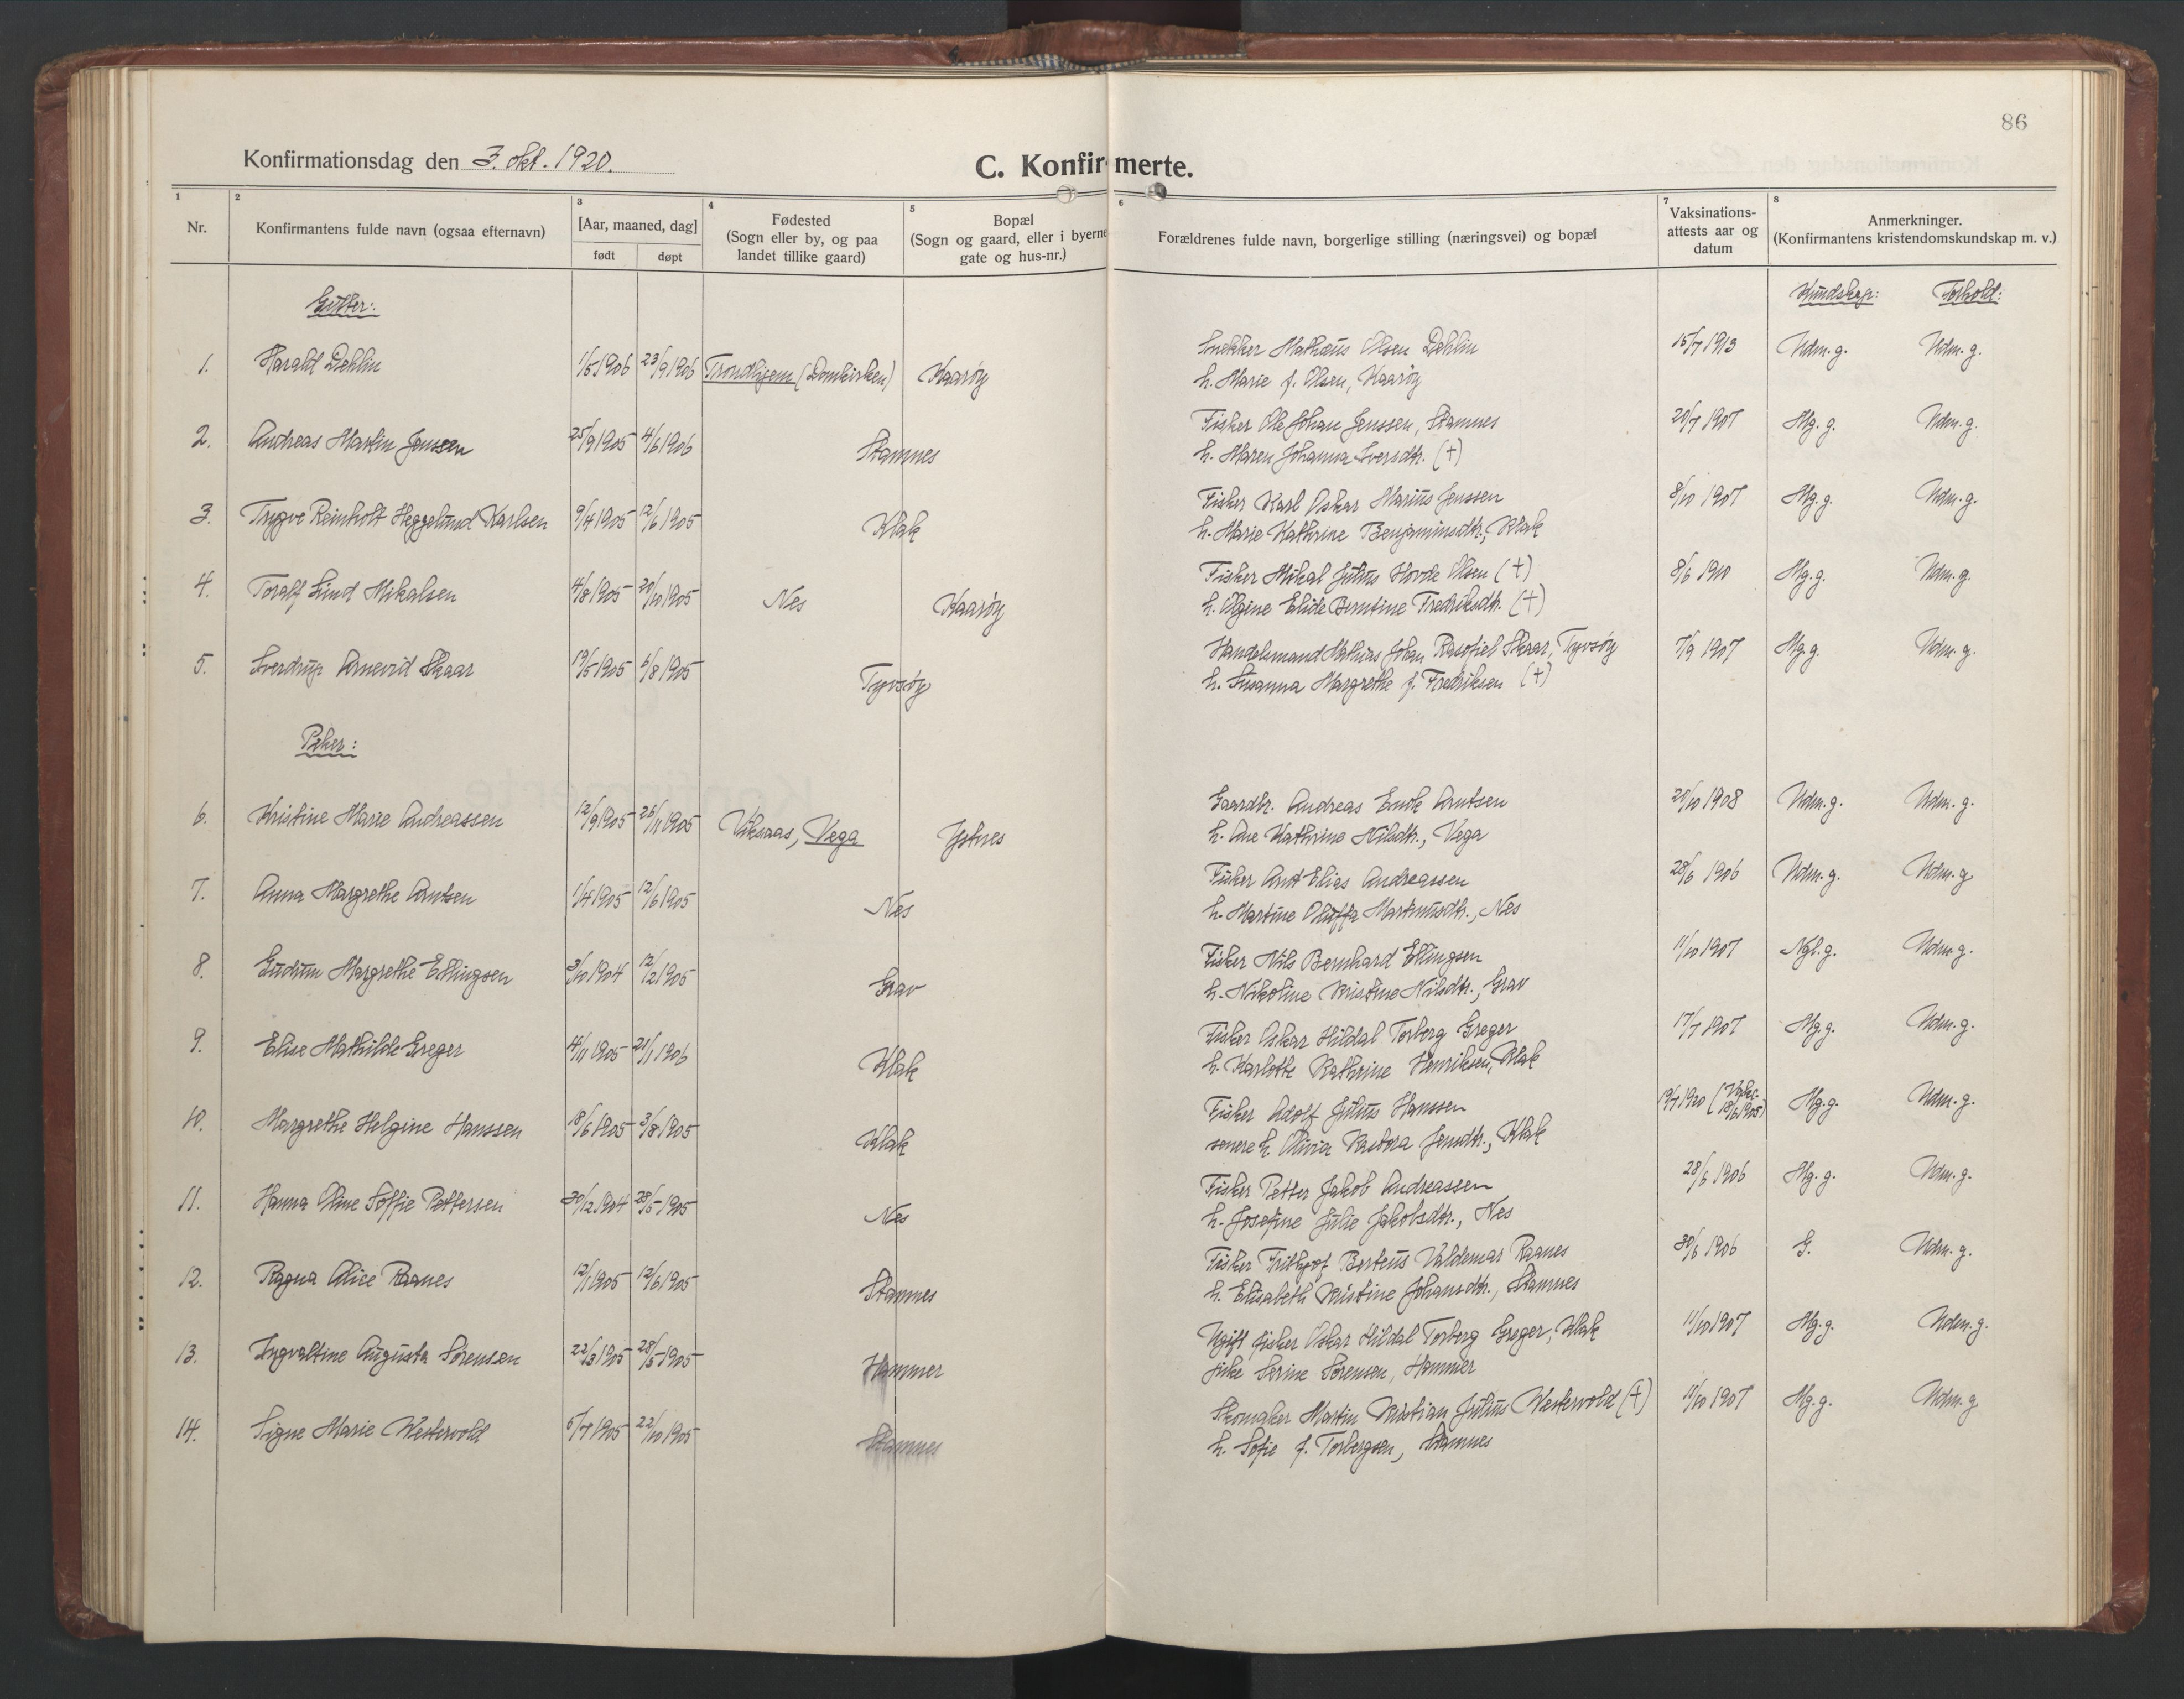 86
Konfirmationsdag den 3. okt. 1920.
C. Konfirmerte.
1 2 3 4 5 6 7 8
Nr.
Konfirmantens fulde navn (ogsaa efternavn)
[Aar, maaned, dag]
født døpt
Fødested
(Sogn eller by, og paa
landet tillike gaard)
Bopæl
(Sogn og gaard, eller i byerne
gate og hus-nr.)
Forældrenes fulde navn, borgerlige stilling (næringsvei) og bopæl
Vaksinations-
attests aar og
datum
Anmerkninger.
(Konfirmantens kristendomskundskap m. v.)
Gutter:
Kundskap: Forhold:
1. Harald Dehlin 1/5 1906 23/9 1906 Trondhjem (Domkirken) Kaarøy
Snekker Mathæus Olsen Dehlin
h. Marie f. Olsen, Kaarøy
15/7 1913 Udm. g. Udm. g.
2. Andreas Martin Jenssen 25/9 1905 4/6 1906 Stamnes
Fisker Ole Johan Jenssen, Stamnes
h. Maren Johanna Iversdtr. (+)
20/7 1907 Mg. g. Udm. g.
3. Trygve Reinholt Heggelund Karlsen 9/4 1905 12/6 1905 Klak
Fisker Karl Oskar Marius Jenssen
h. Marie Kathrine Benjaminsdtr., Klak
8/10 1907 Mg. g. Udm. g.
4. Toralf Lind Mikalsen 4/8 1905 20/10 1905 Nes Kaarøy
Fisker Mikal Julius Hovde Olsen (+)
h. Olgine Elide Berntine Fredriksdtr. (+)
8/6 1910 Mg. g. Udm. g.
5. Sverdrup Arnevid Skaar 19/5 1905 6/8 1905 Tyvsøy
Handelsmand Mathias Johan Rasofiel Skaar, Tyvsøy
h. Susanna Margrethe f. Fredriksen (+)
7/9 1907 Mg. g. Udm. g.
Piker:
6. Kristine Marie Andreassen 12/9 1905 26/11 1905 Viksaas, Vega
Gaardbr. Andreas Arntsen
h. Ane Kathrine Nilsdtr., Vega
20/10 1908 Udm. g. Udm. g.
7. Anna Margrethe Arntsen 1/4 1905 12/6 1905 Nes
Fisker Arnt Elias Andreassen
h. Martine Oluffa Martinusdtr., Nes
28/6 1906 Udm. g. Udm. g.
8. Gudrun Margrethe Ellingsen 3/10 1904 12/2 1905 Grav
Fisker Nils Bernhard Ellingsen
h. Nikoline Kristine Nilsdtr., Grav
11/10 1907 Ngl. g. Udm. g.
9. Elise Mathilde Greger 4/11 1905 21/1 1906 Klak
Fisker Oskar Hildal Torberg Greger
h. Karlotte Kathrine Henriksen, Klak
17/7 1907 Mg. g. Udm. g.
10. Margrethe Helgine Hanssen 18/6 1905 3/8 1905 Klak
Fisker Adolf Julius Hanssen
senere h. Olivia Pastora Jensdtr., Klak
19/7 1920 Mg. g. Udm. g.
11. Hanna Oline Soffie Pettersen 30/12 1904 28/5 1905 Nes
Fisker Petter Jakob Andreassen
h. Josefine Julie Jakobsdtr., Nes
28/6 1906 Mg. g. Udm. g.
12. Ragna Alice Raanes 12/1 1905 12/6 1905 Stamnes
Fisker Frithjof Berteus Valdemar Raanes
h. Elisabeth Kristine Johansdtr., Stamnes
30/6 1906 G. Udm. g.
13. Ingvaltine Augusta Sørensen 22/3 1905 28/5 1905 Hammer
Ugift fisker Oskar Hildal Torberg Greger, Klak
pike Serine Sørensen, Hammer
11/10 1907 Mg. g. Udm. g.
14. Signe Marie Westervold 5/7 1905 22/10 1905 Stamnes
Skomaker Martin Kristian Julius Westervold (+)
h. Sofie f. Torbergsen, Stamnes
11/10 1907 Mg. g. Udm. g.